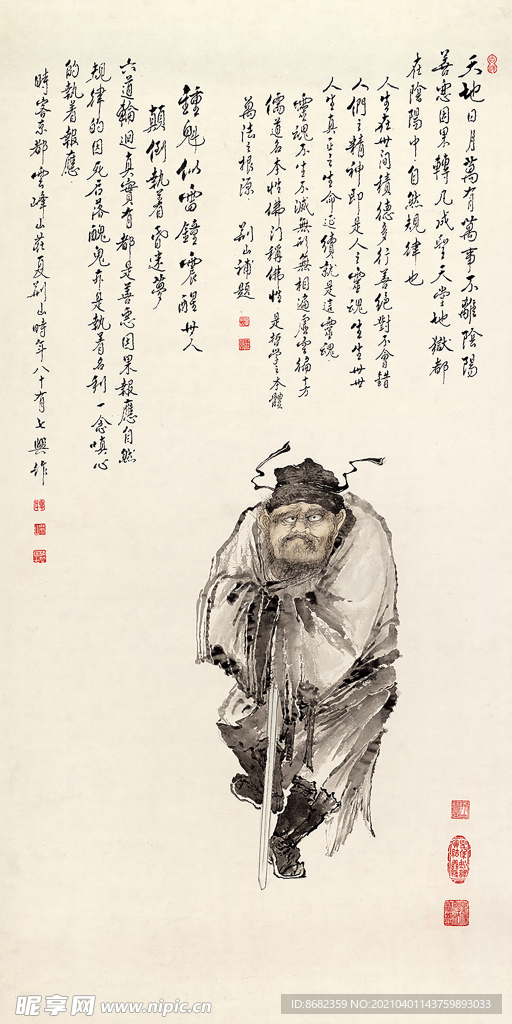 天地日月萬有萬事不離陰陽
善惡因果轉凡成聖天堂地獄都
在陰陽中自然規律也
人生在世间積德多行善絕對不會錯
人們之精神即是人之靈魂生生世世
人生真正之生命延續就是這靈魂
靈魂不生不滅無形無相遍虛空徧十方
儒道名本性佛门稱佛性是哲學之本體
萬法之根源 荆山補題
鍾馗似雷鐘震醒世人
顛倒執著昏迷夢
六道輪迴真實有都是善惡因果報應自然
規律的因死后落醜鬼亦是執着名利一念嗔心
的執着報應
時客京都雲峰山莊夏荆山時年八十有七興作
昵享网 www.nipic.cn
ID:8682359 NO:20210401143759893033